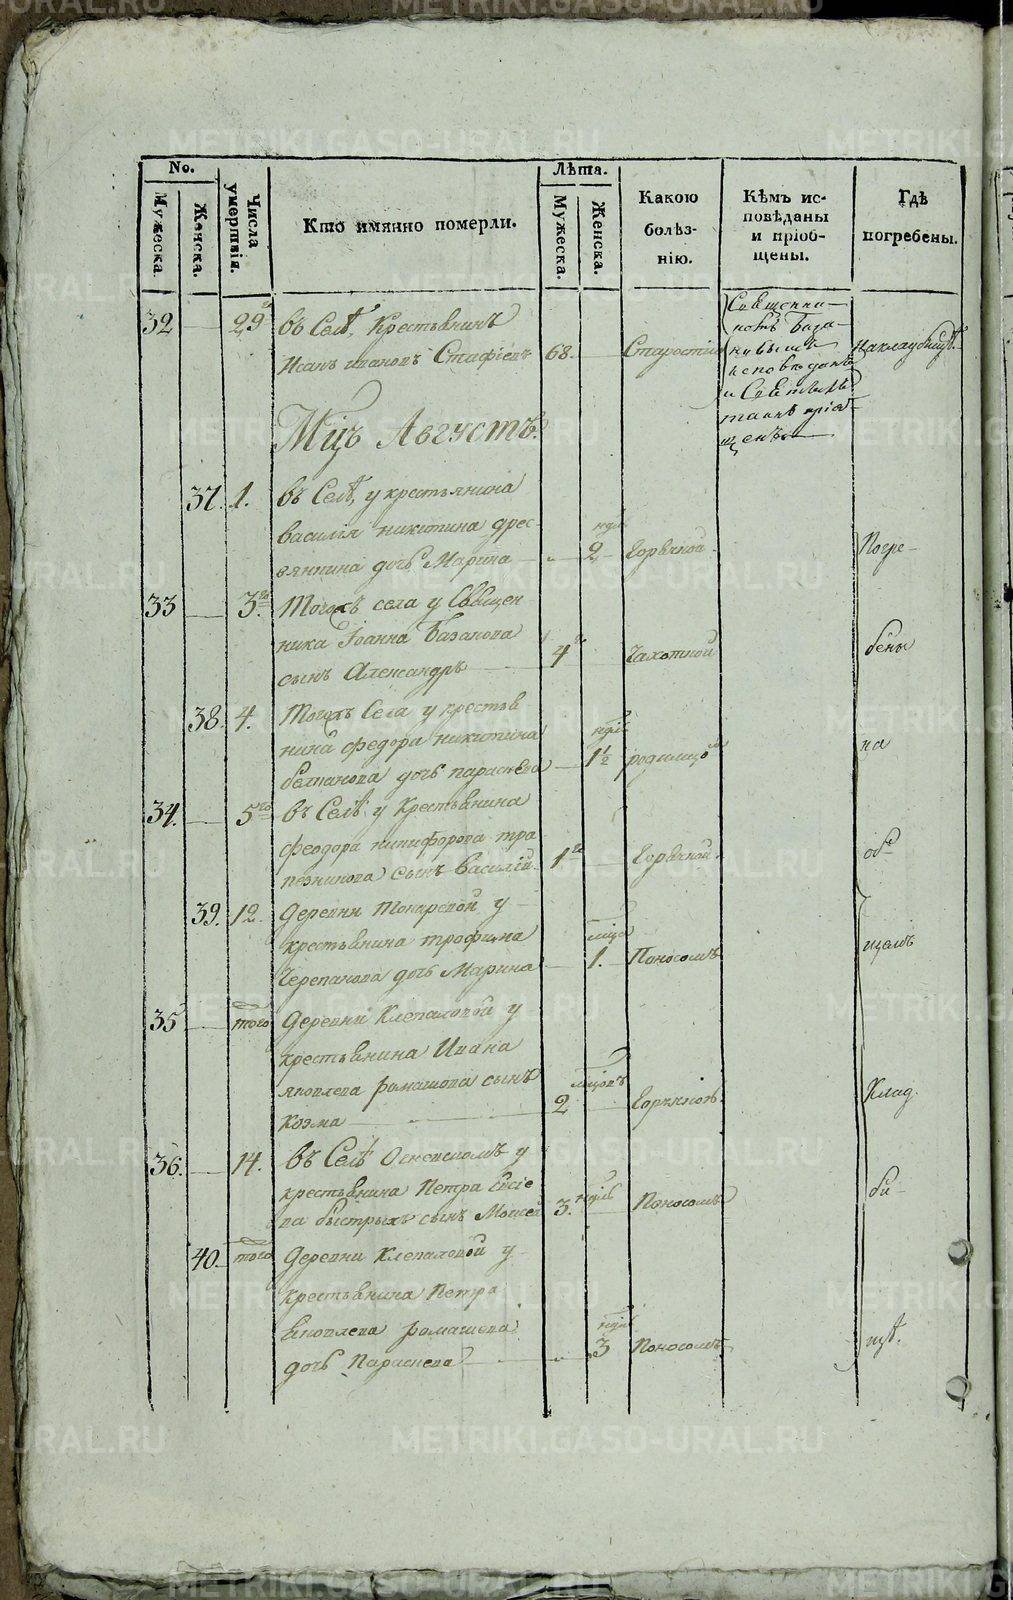 No.
Мужеска.
Женска.
Числа умертвія.
Кто имянно померли.
Лѣта.
Мужеска.
Женска.
Какою болѣз-
нію.
Кѣмъ ис-
повѣданы
и пріоб-
щены.
Гдѣ
погребены.
32 29 въ Селѣ Крестьянинъ
Иванъ Ивановъ 68. Старостію
Священни-
комъ База-
новымъ
исповѣданъ
и Святыхъ
таинъ пріоб-
щенъ
на кладбищѣ
Мцъ Августъ.
37. 1. въ Селѣ у крестьянина
василія никитина дрес-
вянкина дочь Марина 2 Горячкой
33 3. Тогожъ села у Священ-
ника Іоанна Базанова
сынъ Александръ 4 Чахоткой
38. 4. Тогожъ Села у крестья
нина федора никитина
дочь параскева 1½ родимцомъ
34. 5 въ Селѣ у Крестьянина
феодора никифорова тра
пезникова сынъ Василій 1 Горячкой
39. 12. Деревни Токаревой у
крестьянина трофима
Черепанова дочь Марина 1. Поносомъ
35 того Деревни Клепаловой у
крестьянина Ивана
яковлева ромашова сынъ
Козма 2 Горячкой
36. 14. въ Селѣ у
крестьянина Петра
ва быстрыхъ сынъ Моисей 3. Поносомъ
40. того Деревни Клепаловой у
крестьянина Петра
яковлева ромашева
дочь Параскева 3 Поносомъ
Погре-
бены
на
об-
щемъ
Клад
би-
щѣ.
METRIKI.GASO-URAL.RU